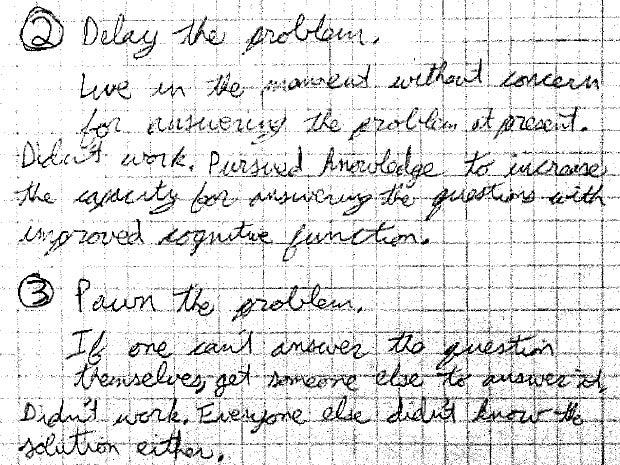 ② Delay the problem.
Live in the moment without concern
for answering the problem at present.
Didn't work. Pursued knowledge to increase
the capacity for answering the questions with
improved cognitive function.
③ Pawn the problem.
If one can't answer the question
themselves, get someone else to answer it.
Didn't work. Everyone else didn't know the
solution either.